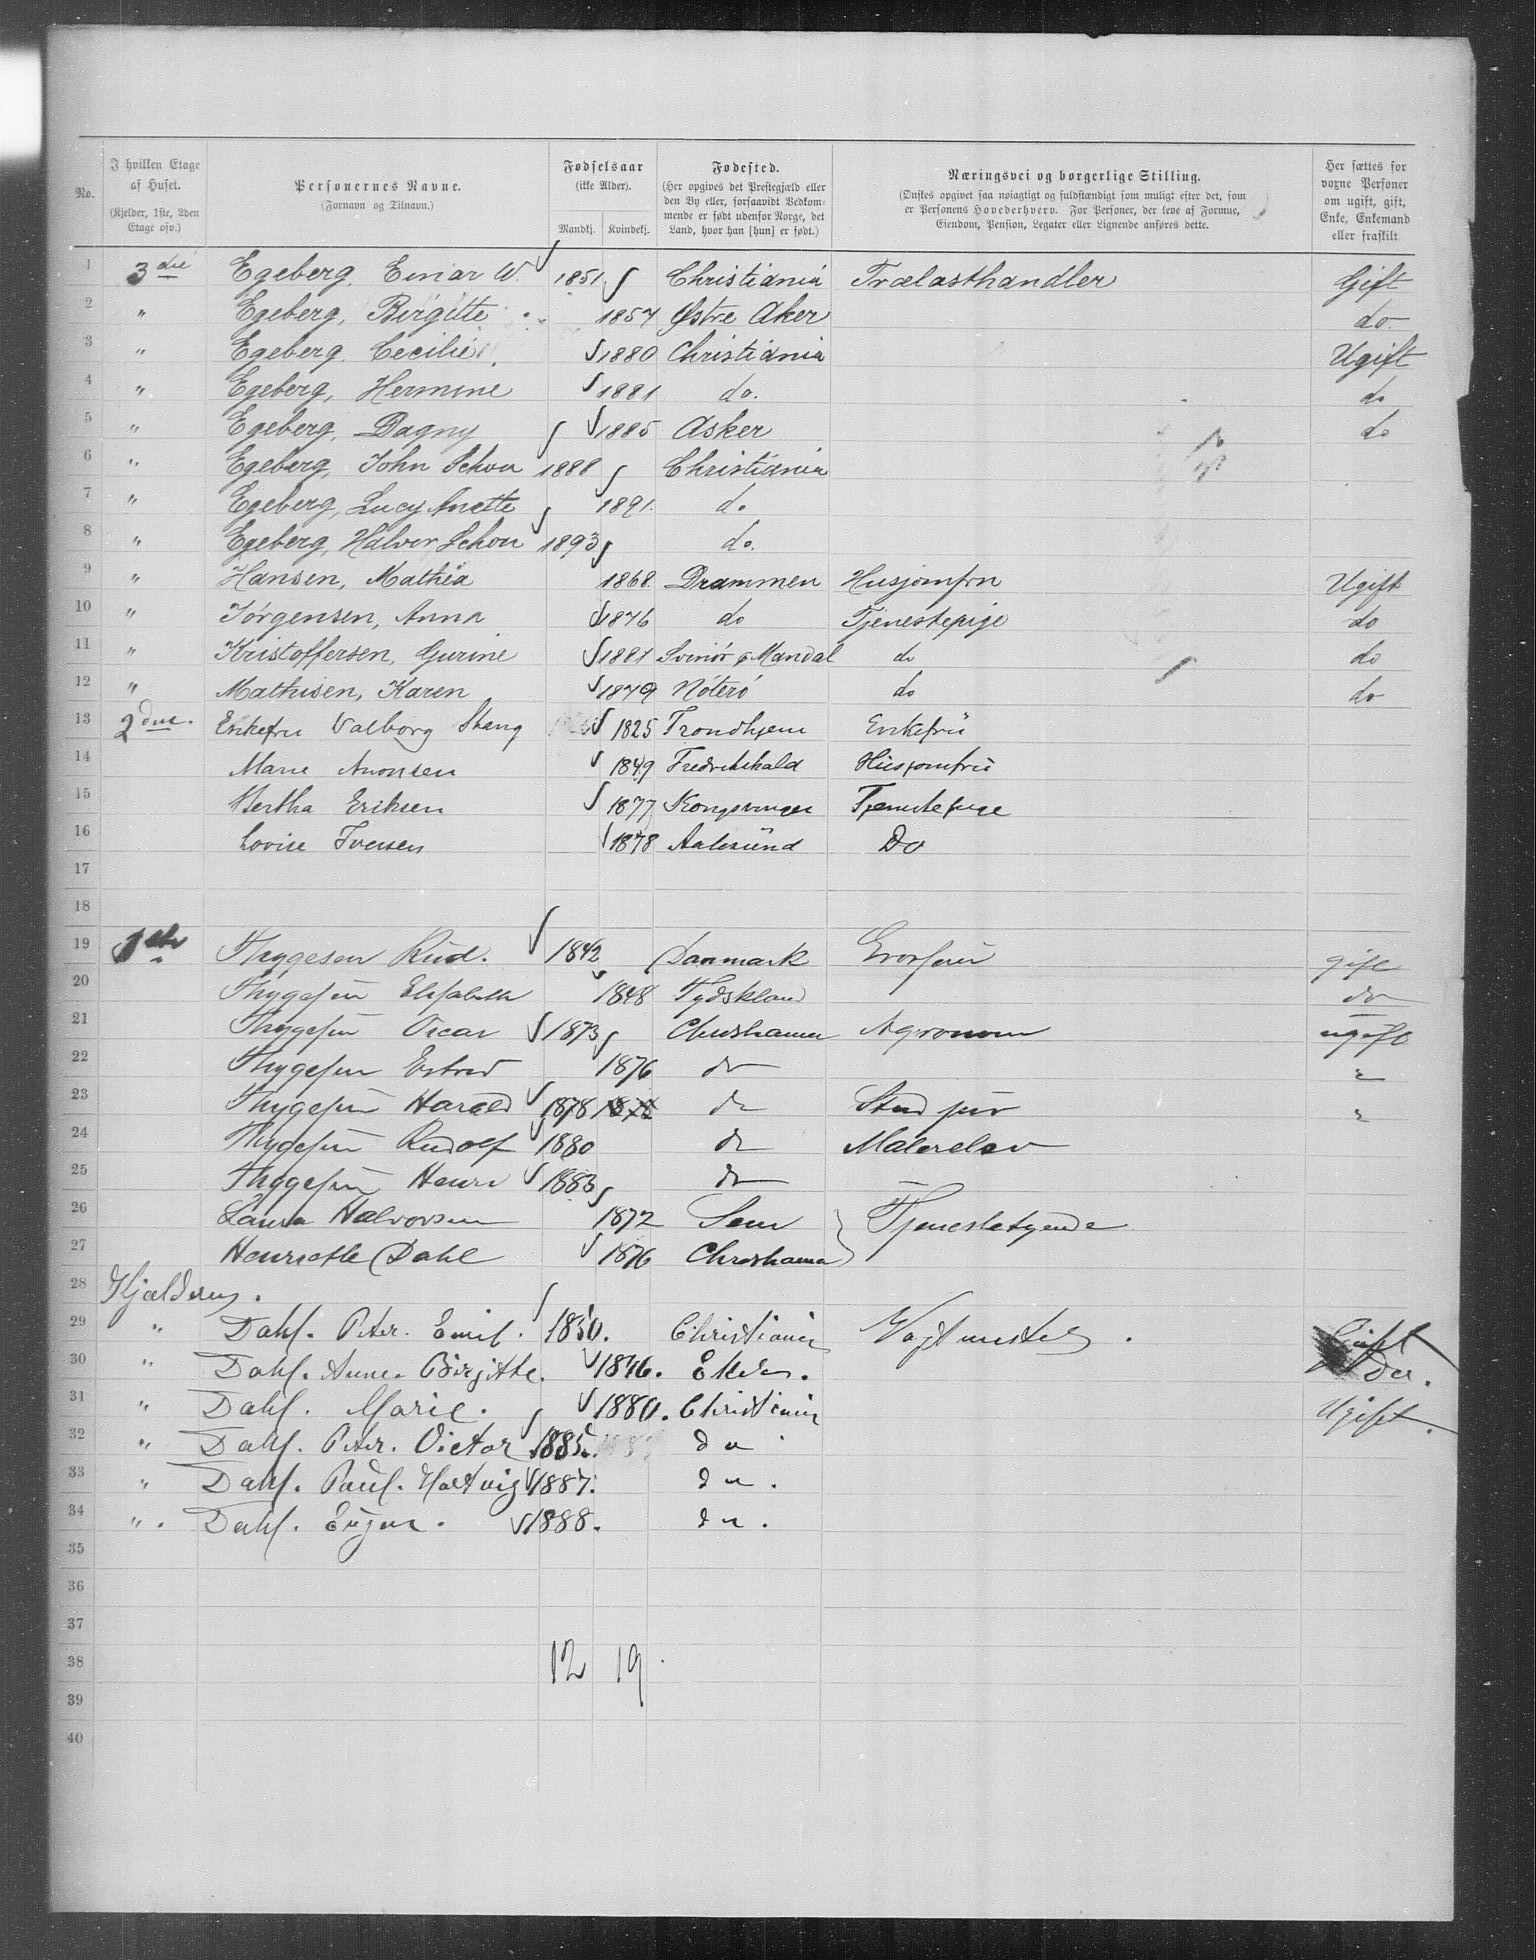 No. | I hvilken Etage af Huset. (Kjelder, 1ste, 2den Etage osv.) | Personernes Navne. (Fornavn og Tilnavn.) | Fødselsaar (ikke Alder). Mandkj. Kvindekj. | Fødested. (Her opgives det Prestegjæld eller den By eller, forsaavidt Vedkommende er født udenfor Norge, det Land, hvor han [hun] er født.) | Næringsvei og borgerlige Stilling. (Ønskes opgivet saa nøiagtigt og fuldstændigt som muligt efter det, som er Personens Hovederhverv. For Personer, der leve af Formue, Eiendom, Pension, Legater eller Lignende anføres dette. | Her sættes for voxne Personer om ugift, gift, Enke, Enkemand eller fraskilt.
1 3die Egeberg, Einar W. 1851 Christiania Trælasthandler Gift
2 " Egeberg, Birgitte 1857 Østre Aker do.
3 " Egeberg, Cecilie 1880 Christiania Ugift
4 " Egeberg, Hermine 1881 do. do
5 " Egeberg, Dagny 1885 Asker do
6 " Egeberg, John Schou 1888 Christiania
7 " Egeberg, Lucy Anette 1891. do
8 " Egeberg, Halvor Schou 1893 do.
9 " Hansen, Mathea 1868. Drammen Husjomfru Ugift
10 " Jørgensen, Anna 1876 do Tjenestepige do
11 " Kristoffersen, Gurine 1881 Svinør p Mandal do do
12 " Mathisen, Karen 1879 Nøterø do do
13 2den. Enkefru Valborg Stang 1825 Trondhjem Enkefru
14 Marie Aronsen 1849 Fredrikshald Husjomfru
15 Bertha Eriksen 1877 Kongsvinger Tjenestepige
16 Lovise Iversen 1878 Aalesund Do
17
18
19 1ste Thygesen Rud. 1842 Danmark Grosserer gift
20 Thygesen Elisabeth 1848 Tydskland do
21 Thygesen Oscar 1873 Christiania Agronom ugift
22 Thygesen Estrid 1876 do "
23 Thygesen Harald 1878 1878 do Stud jur "
24 Thygesen Rudolf 1880 do Malerelev
25 Thygesen Henri 1883 do
26 Laura Halvorsen 1872 Sem } Tjenestetyende
27 Henriette Dahl 1876 Christiania
28 Kjælderen.
29 " Dahl. Peter. Emil. 1850. Christiania Vagtmester. Gift
30 " Dahl. Anne. Birgitte. 1846. Do.
31 " Dahl. Marie. 1880. Christiania Ugift.
32 " Dahl. Peter. Victor 1885. do
33 " Dahl. Paul. Hartvig 1887. do.
34 " Dahl. Eugen. 1888. do.
35
36
37
38 12 19.
39
40